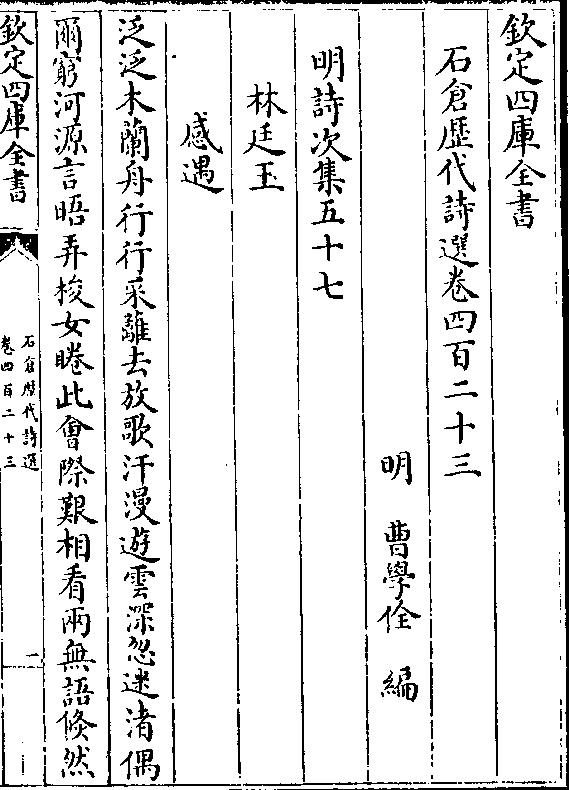 欽定四庫全書
石倉歴代詩選卷四百二十三
明 曹學佺 編
明詩次集五十七
林廷玉
感遇
泛泛木蘭舟行行采離去放歌汗漫遊雲深忽迷渚偶
爾窮河源言晤弄梭女睠此會際艱相看兩無語倐然
欽定四庫全書
石倉歴代詩選
卷四百二十三
一